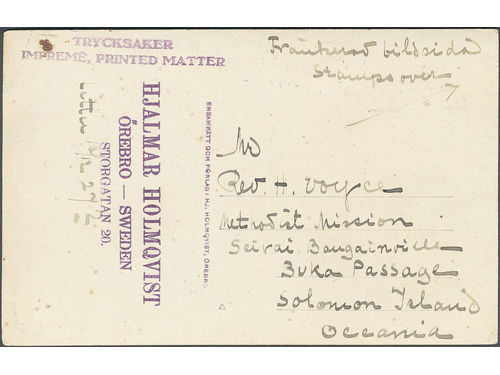 TRYCKSAKER
IMPREMÉ, PRINTED MATTER
Frankerad bildsida
Stamps over
HJALMAR HOLMQVIST
ÖREBRO — SWEDEN
STORGATAN 20.
ENSAMRÄTT OCH FÖRLAG: HJ. HOLMQVIST, ÖREBRO
Mr
Rev. H. Voyce
Methodist Mission
Seivai, Baugainville
Buka Passage
Solomon Island
Oceania